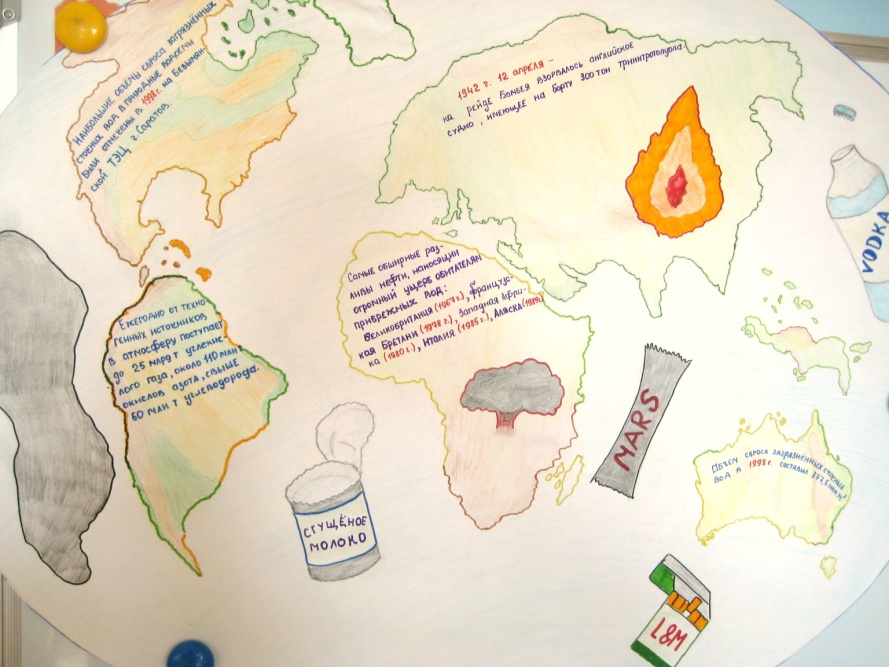 Наибольшие объёмы сброса загрязнённых
сточных вод в природные водоёмы
были отмечены в 1998г. на Безымян-
ской ТЭЦ г.Саратов.
1942 г. 12 апреля –
на рейде Бомбея взорвалось английское
судно, имеющее на борту 300 тон тринитротолуола
Самые обширные раз-
ливы нефти, наносящии
огромный ущерб обитателям
прибрежных вод:
Великобритания (1967г.), француз-
кая Бретани (1978г.), Западная Афри-
ка (1980г.), Италия (1985г.), Аляска (1989г.)
Ежегодно от техно
генных источников
в атмосферу поступает
до 25 млрд т углекис-
лого газа, около 110 млн
окислов азота, свыше
60 млн т углеводорода.
Объём сброса загрязнённых сточных
вод в 1998г. составил
VODKA
MARS
СГУЩЁНОЕ
МОЛОКО
L&M